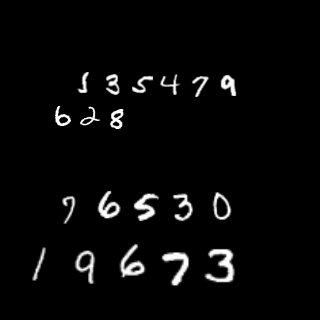 135479
628
76530
19673